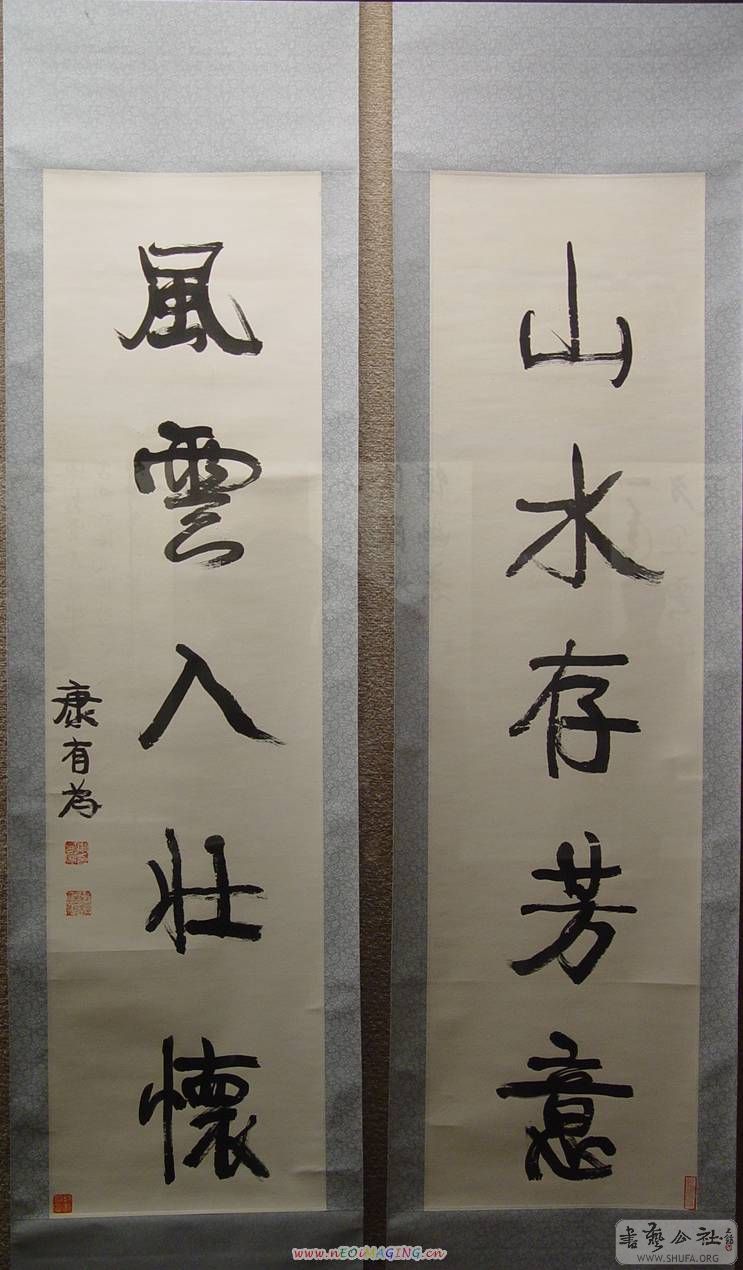 山水存芳意
風雲入壯懷
康有為
www.nEOiMAGING.cn
書藝公社
WWW.SHUFA.ORG